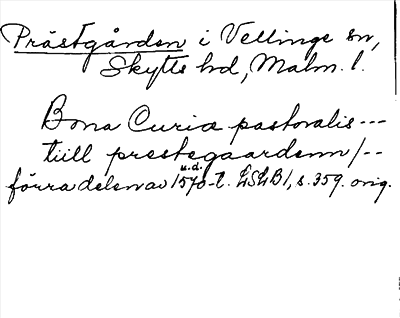 Prästgården i Vellinge sn,
Skytts hd, Malm. l.
Bona Curiæ pastoralis ---
tiill prestegaardenn/--
u.d.
förra delen av 1570-t. LSLB1, s. 359. orig.